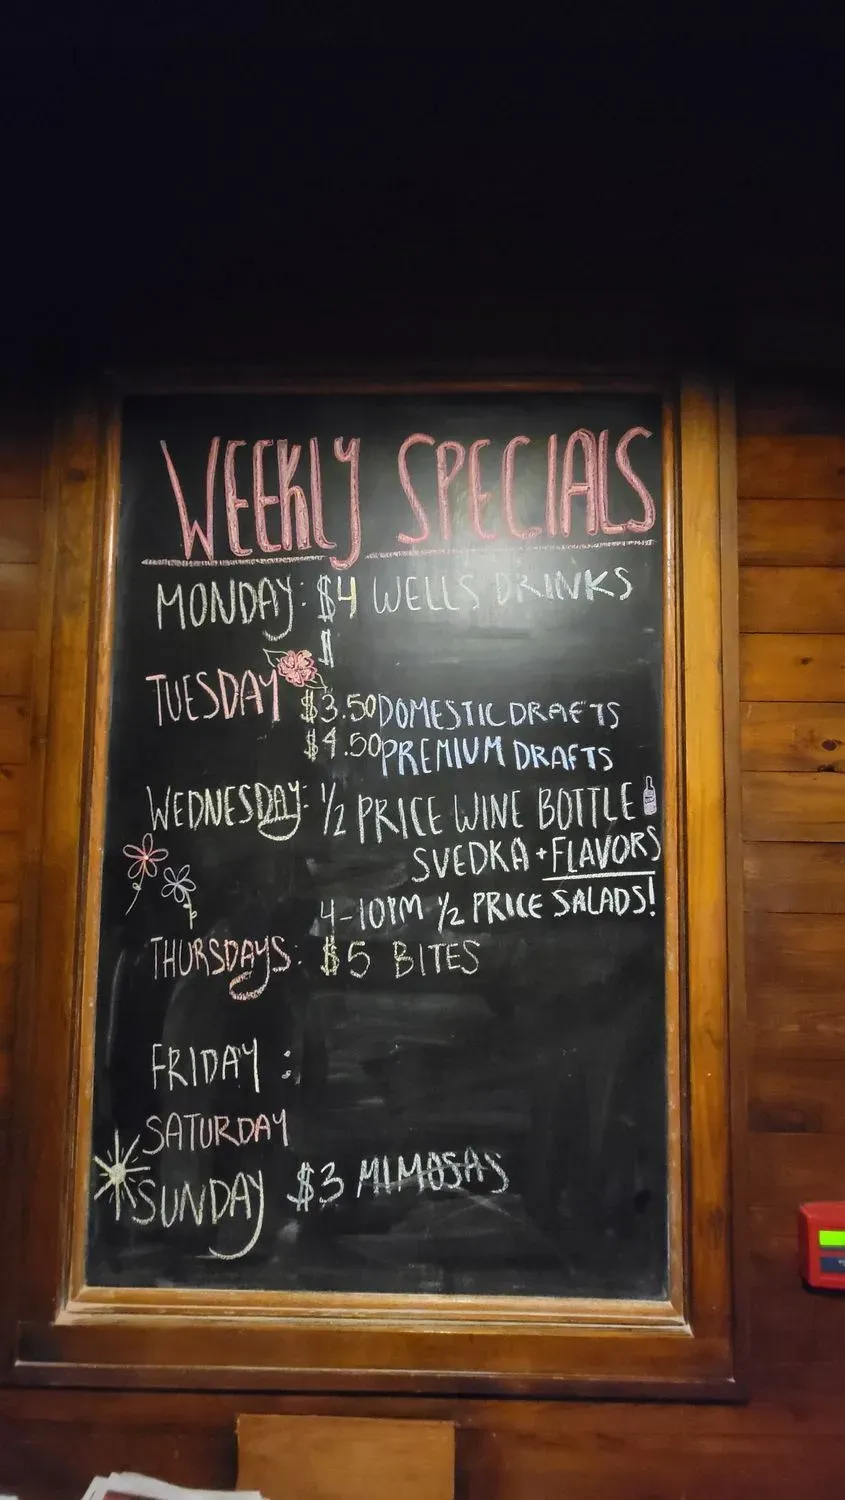 WEEKLY SPECIALS
MONDAY: $4 WELLS DRINKS
$
TUESDAY
$3.50 DOMESTIC DRAFTS
$4.50 PREMIUM DRAFTS
WEDNESDAY: 1/2 PRICE WINE BOTTLE
SVEDKA + FLAVORS
4-10PM 1/2 PRICE SALADS!
THURSDAYS: $5 BITES
FRIDAY :
SATURDAY
SUNDAY $3 MIMOSAS